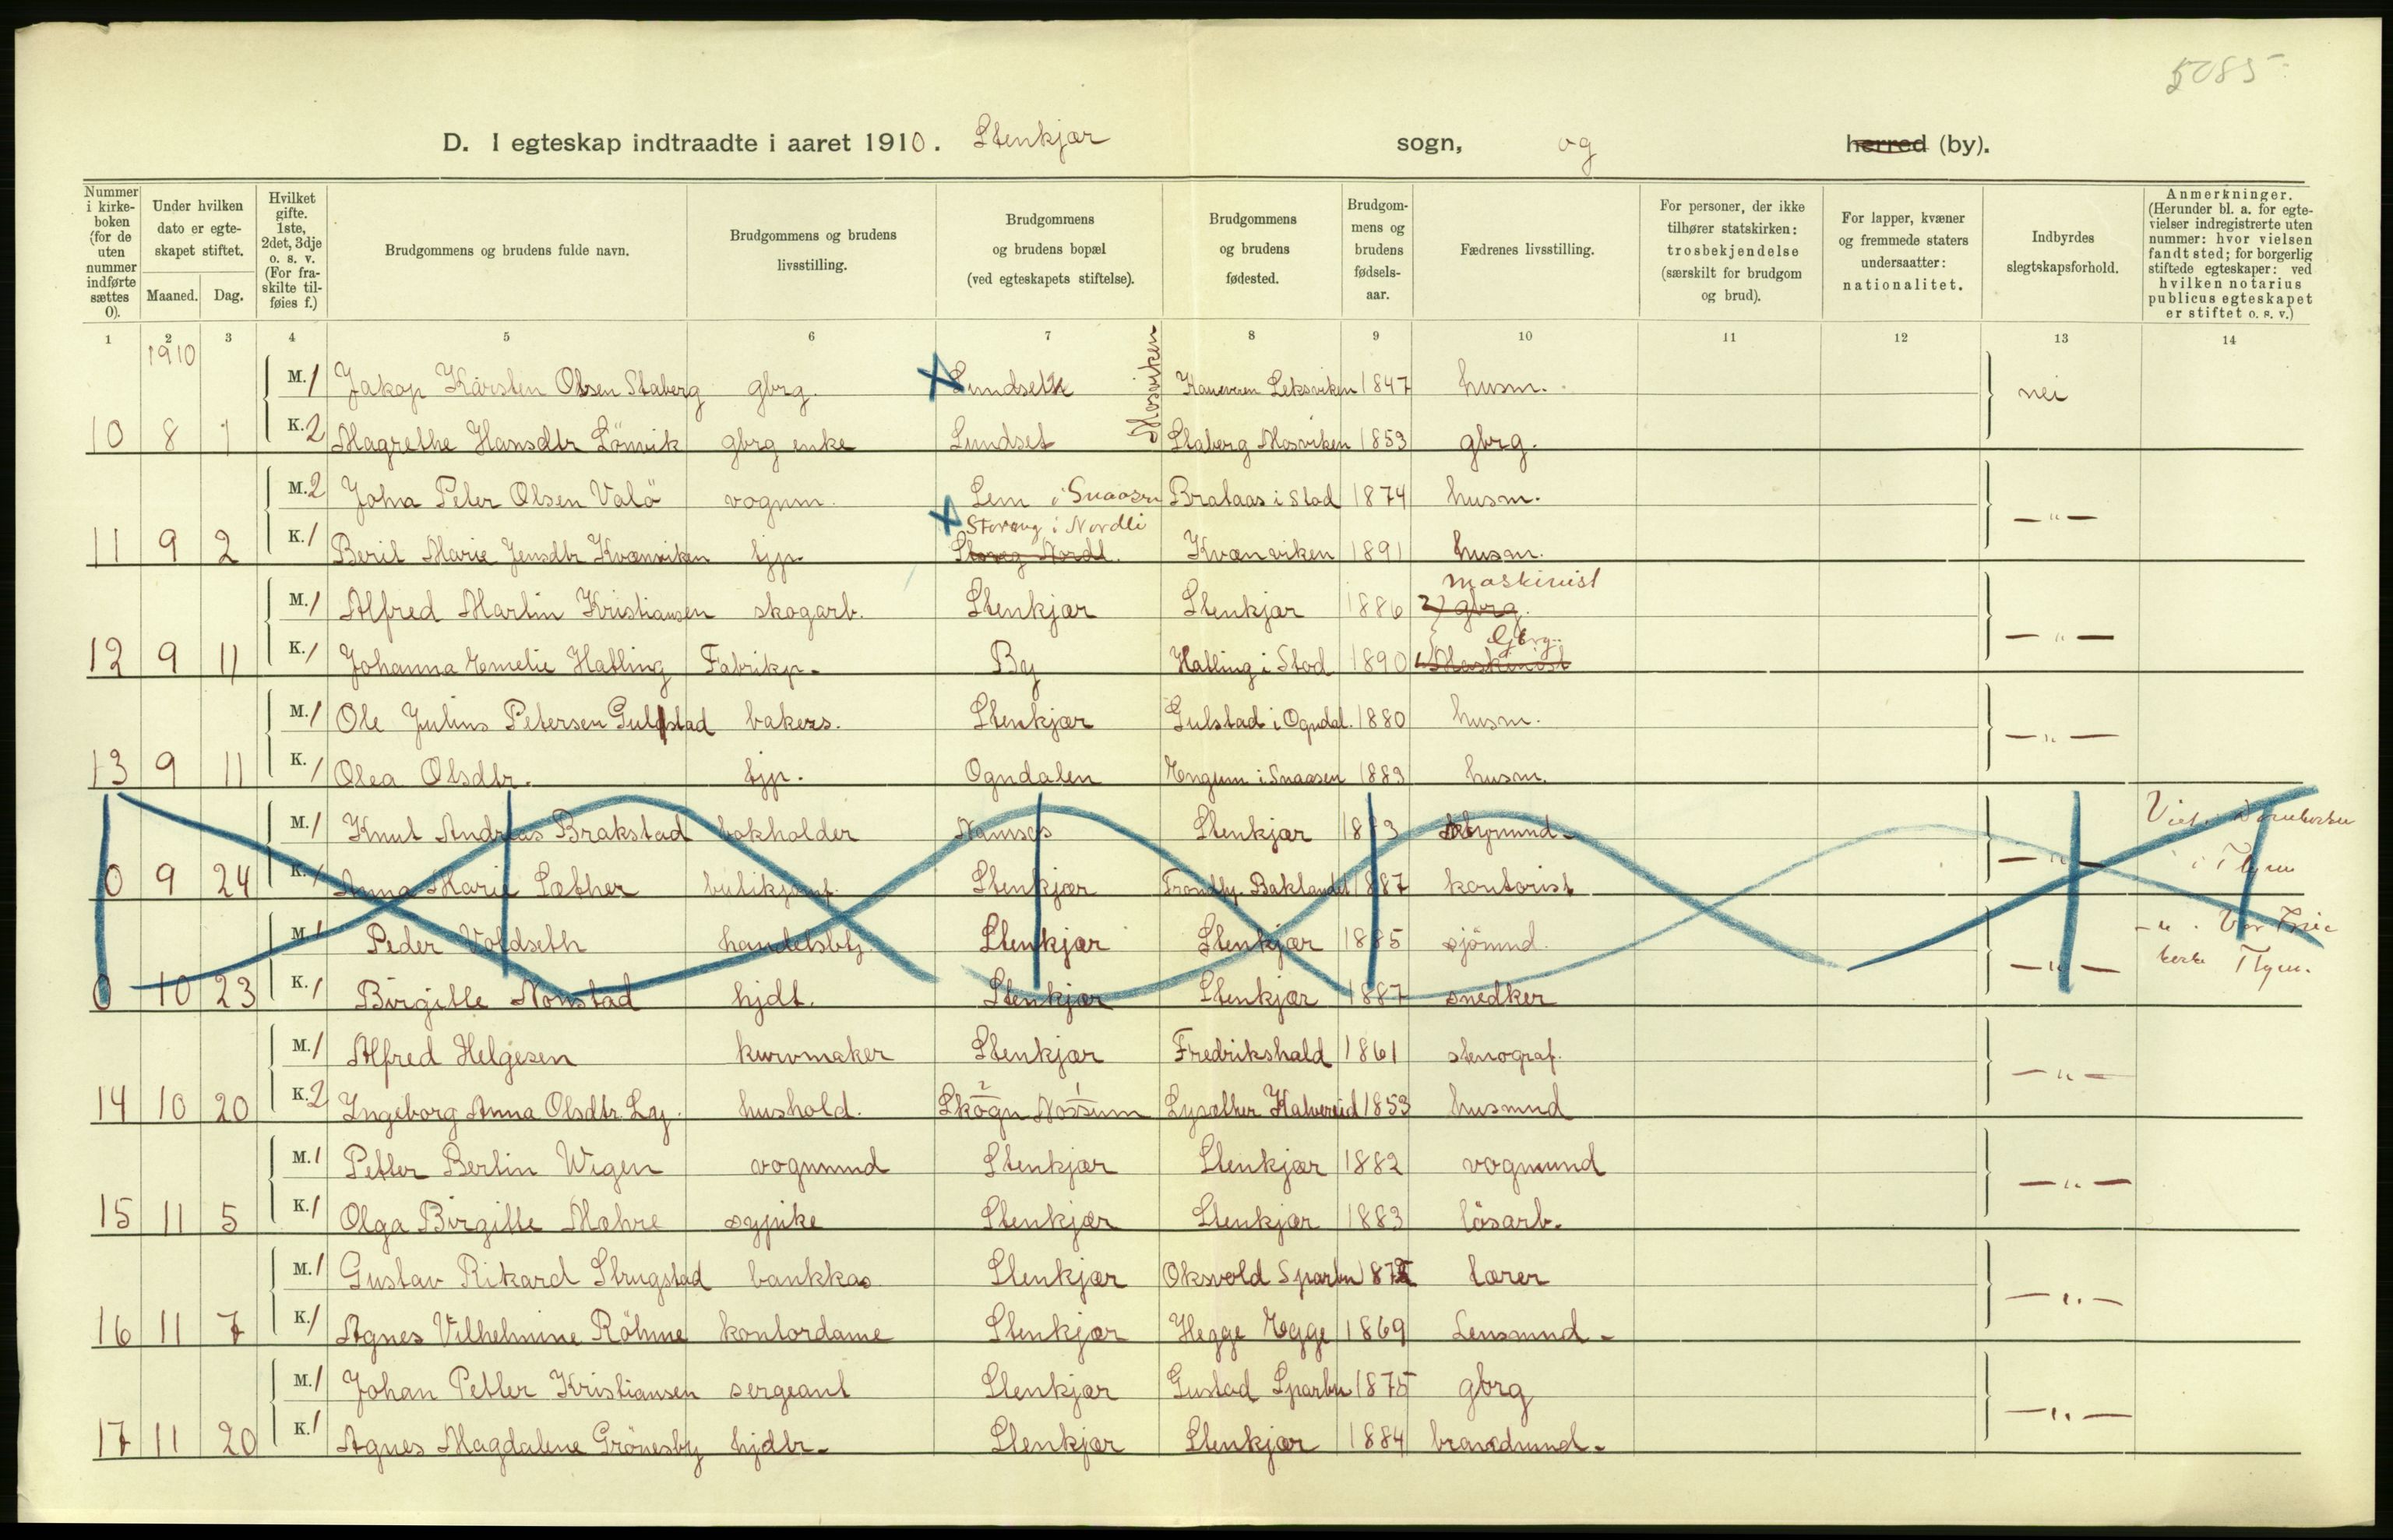 5085
D. I egteskap indtraadte i aaret 1910. Stenkjær sogn, og herred (by).
Nummer i kirkeboken (for de uten nummer indførte sættes 0).
Under hvilken dato er egteskapet stiftet.
Maaned. Dag.
Hvilket gifte. 1ste, 2det, 3dje o. s. v. (For fraskilte tilføies f.)
Brudgommens og brudens fulde navn.
Brudgommens og brudens livsstilling.
Brudgommens og brudens bopæl (ved egteskapets stiftelse).
Brudgommens og brudens fødested.
Brudgommens og brudens fødselsaar.
Fædrenes livsstilling.
For personer, der ikke tilhører statskirken: trosbekjendelse (særskilt for brudgom og brud).
For lapper, kvæner og fremmede staters undersaatter: nationalitet.
Indbyrdes slegtskapsforhold.
Anmerkninger. (Herunder bl. a. for egtevielser indregistrerte uten nummer: hvor vielsen fandt sted; for borgerlig stiftede egteskaper: ved hvilken notarius publicus egteskapet er stiftet o. s. v.)
1 2 3 4 5 6 7 8 9 10 11 12 13 14
1910
M. 1 Jakop Karsten Olsen Staberg gbrg. Lundseth Mosviken Leksviken 1847 husm. nei
10 8 1 K. 2 Magrethe Hansdtr Lönvik gbrg enke Lundset Staberg Mosviken 1853 gbrg.
M. 2 Joha Peter Olsen Valö vognm. Lem i Snaasen Brataas i Stod 1874 husm. — " —
Storvug i Nordli
11 9 2 K. 1 Beril Marie Jensdtr Kvænviken tjp. Nordl. Kvænviken 1891 husm.
maskinist
M. 1 Alfred Martin Kristiansen skogarb. Stenkjær Stenkjær 1886 2) gbrg. — " —
Gbrg.
12 9 11 K. 1 Johanna Emelie Hatling Fabrikp. By Hatling i Stod 1890 Maskinist
M. 1 Ole Julius Petersen Gulstad bakers. Stenkjær Gulstad i Ogndal. 1880 husm. — " —
13 9 11 K. 1 Olea Olsdtr. tjp. Ogndalen Engum i Snaasen 1883 husm.
M. 1 Knut Andreas Brakstad bokholder Namsos Stenkjær 18 3 — " —
0 9 24 K. 1 Anna Marie Sæther Stenkjær Trondhj. Baklandet 1887 kontorist i Thjem
M. 1 Peder Voldseth handelsbtj. Stenkjær Stenkjær 1885 sjömnd. — " — Vor Frue
0 10 23 K. 1 Birgitte Nonstad hjdt. Stenkjær Stenkjær 1887 snedker kirke Thjem.
M. 1 Alfred Helgesen kurvmaker Stenkjær Fredrikshald 1861 stenograf. — " —
14 10 20 K. 2 Ingeborg Anna Olsdtr Ly. hushold. Skogn Nossum Lysæther Kalvereid 1853 husmnd
M. 1 Petter Bertin Wigen vognmnd Stenkjær Stenkjær 1882 vognmnd — " —
15 11 5 K. 1 Olga Birgitte Mæhre sypike Stenkjær Stenkjær 1883 lösarb.
M. 1 Gustav Rikard Strugstad bankkas. Stenkjær Oksvold Sparbu 187 lærer — " —
16 11 7 K. 1 Agnes Vilhelmine Röhme kontordame Stenkjær Hegge Egge 1869 Lensmnd.
M. 1 Johan Petter Kristiansen sergeant Stenkjær Gustad Sparbu 1875 gbrg — " —
17 11 20 K. 1 Agnes Magdalene Grönesby hjdtr. Stenkjær Stenkjær 1884 brandmnd.